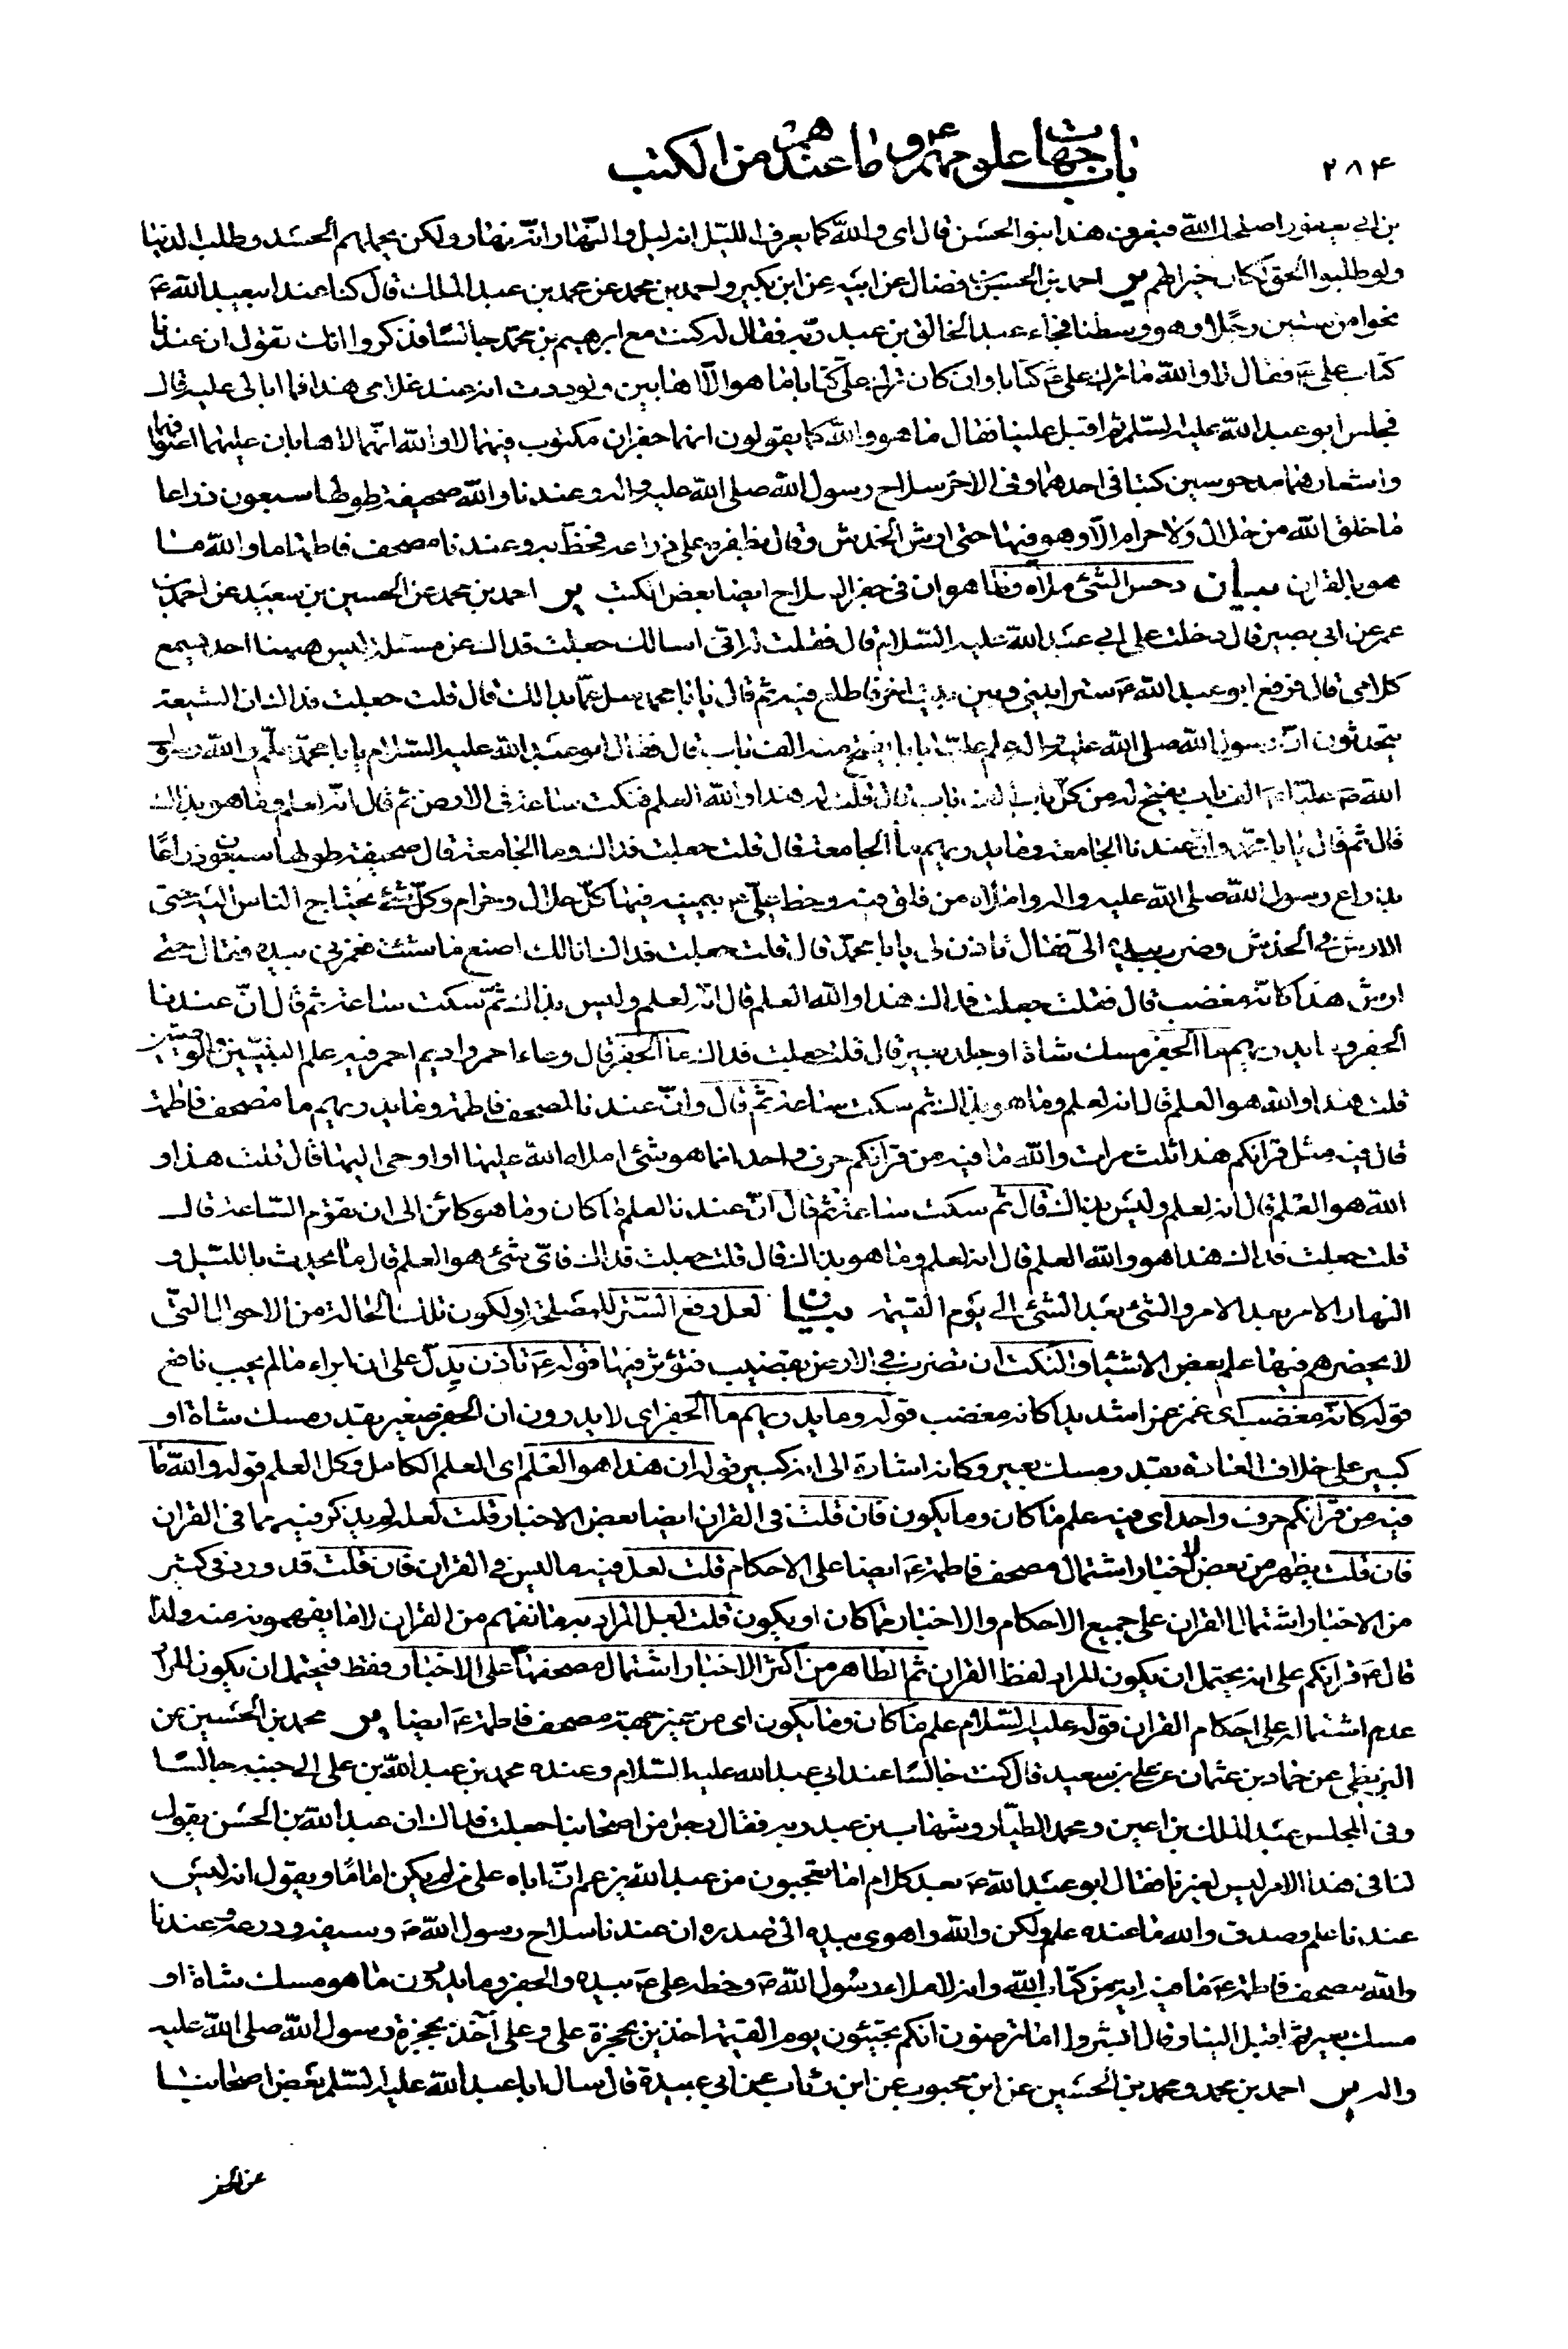 ٢٨۴
باب جهات علومهم ع و ما عندهم من الكتب
بن ابي يعفور اصلحك الله فيعرف هذا بنو الحسن قال اى والله كما يعرف الليل انه ليل والنهار انه نهار ولكن يحملهم الحسد وطلب الدنيا
ولو طلبوا الحق لكان خيرا لهم ير احمد بن الحسن بن فضال عن ابيه عن ابن بكير واحمد بن محمد عن محمد بن عبد الملك قال كنا عند ابيعبد الله ع
نحوا من ستين رجلا وهو وسطنا فجاء عبد الخالق بن عبد ربه فقال له كنت مع ابرهيم بن محمد جالسًا فذكروا انك تقول ان عندنا
كتاب على ع فقال لا والله ما ترك على ع كتابا وان كان ترك على كتابا ما هو الا اهابين ولوددت انه عند غلامى هذا فما ابالى عليه قال
فجلس ابو عبد الله عليه السلم ثم اقبل علينا فقال ما هو والله كما يقولون انهما جفران مكتوب فيهما لا والله انهما لاهابان عليهما اصوافهما
واشعارهما مدحوسين كتبا فى احدهما وفى الاخر سلاح رسول الله صلى الله عليه واله وعندنا والله صحيفة طولها سبعون ذراعا
ما خلق الله من حلال ولا حرام الا وهو فيها حتى ارش الخدش وقال بظفره على ذراعه فخط به وعندنا مصحف فاطمة اما والله ما
هو بالقران بيان دحس الشئ ملأه وظاهره ان فى جفر السلاح ايضا بعض الكتب ير احمد بن محمد عن الحسين بن سعيد عن احمد بن
عمر عن ابى بصير قال دخلت على ابي عبد الله عليه السلام قال فقلت له انى اسالك جعلت فداك عن مسئلة ليس ههنا احد يسمع
كلامى قال فرفع ابو عبد الله ع سترا بينى وبين بيت اخر فاطلع فيه ثم قال يا ابا محمد سل عما بدا لك قال قلت جعلت فداك ان الشيعة
يتحدثون ان رسول الله صلى الله عليه واله علم عليّا بابا يفتح منه الف باب قال فقال ابو عبد الله عليه السلام يا ابا محمد علم والله رسول
الله ص عليّا ع الف باب يفتح له من كل باب الف باب قال قلت له هذا والله العلم فنكت ساعة فى الارض ثم قال انه لعلم وما هو بذاك
قال ثم قال يا ابا محمد وان عندنا الجامعة وما يدريهم ما الجامعة قال قلت جعلت فداك وما الجامعة قال صحيفة طولها سبعون ذراعًا
بذراع رسول الله صلى الله عليه واله واملاه من فلق فيه وخط على ع بيمينه فيها كل حلال وحرام وكل شئ يحتاج الناس اليه حتى
الارش فى الخدش وضرب بيده الى فقال تاذن لى يا ابا محمد قال قلت جعلت فداك انا لك اصنع ما شئت فغمزنى بيده فقال حتى
ارش هذا كانه مغضب قال فقلت جعلت فداك هذا والله العلم قال انه لعلم وليس بذاك ثم سكت ساعة ثم قال ان عندنا
الجفر وما يدريهم ما الجفر مسك شاة او جلد بعير قال قلت جعلت فداك ما الجفر قال وعاء احمر واديم احمر فيه علم النبيين والوصيين
قلت هذا والله هو العلم قال انه لعلم وما هو بذاك ثم سكت ساعة ثم قال وان عندنا لمصحف فاطمة وما يدريهم ما مصحف فاطمة
قال فيه مثل قرانكم هذا ثلث مرات والله ما فيه من قرانكم حرف واحد انما هو شئ املاه الله عليها او اوحى اليها قال قلت هذا و
الله هو العلم قال انه لعلم وليس بذاك قال ثم سكت ساعة ثم قال ان عندنا لعلم ما كان وما هو كائن الى ان تقوم الساعة قال
قلت جعلت فداك هذا هو والله العلم قال انه لعلم وما هو بذاك قال قلت جعلت فداك فاى شئ هو العلم قال ما يحدث بالليل و
النهار الامر بعد الامر والشئ بعد الشئ الى يوم القيمة بيان لعل رفع الستر للمصلحة او لكون تلك الحالة من الاحوال التى
لا يحضرهم فيها علم بعض الاشياء والنكت ان تضرب فى الارض بقضيب فتؤثر فيها قوله ع تاذن يدل على ان ابراء ما لم يجب نافع
قوله كانه مغضب اى غمز غمزا شديدا كانه مغضب قوله وما يدريهم ما الجفر اى لا يدرون ان الجفر صغير بقدر مسك شاة او
كبير على خلاف العادة بقدر مسك بعير وكانه اشارة الى انه كبير قوله ان هذا هو العلم اى العلم الكامل وكل العلم قوله والله ما
فيه من قرانكم حرف واحد اى فيه علم ما كان وما يكون فان قلت فى القران ايضا بعض الاخبار قلت لعله لم يذكر فيه مما فى القران
فان قلت يظهر من بعض الاخبار اشتمال مصحف فاطمة ع ايضا على الاحكام قلت لعل فيه ما ليس فى القران فان قلت قد ورد فى كثير
من الاخبار اشتمال القران على جميع الاحكام والاخبار مما كان او يكون قلت لعل المراد به ما نفهم من القران لا ما يفهمونه منه ولذا
قال ع قرانكم على انه يحتمل ان يكون المراد لفظ القران ثم الظاهر من اكثر الاخبار اشتمال مصحفها على الاخبار فقط فيحتمل ان يكون المراد
عدم اشتماله على احكام القران قوله عليه السلام علم ما كان وما يكون اى من غير جهة مصحف فاطمة ع ايضا ير محمد بن الحسين عن
البزنطى عن حماد بن عثمان عن على بن سعيد قال كنت جالسًا عند ابى عبد الله عليه السلام وعنده محمد بن عبد الله بن على الى جنبه جالسًا
وفى المجلس عبد الملك بن اعين ومحمد الطيار وشهاب بن عبد ربه فقال رجل من اصحابنا جعلت فداك ان عبد الله بن الحسن يقول
لنا فى هذا الامر ليس لغيرنا فقال ابو عبد الله ع بعد كلام اما تعجبون من عبد الله يزعم ان اباه على من لم يكن امامًا ويقول انه ليس
عندنا علم وصدق والله ما عنده علم ولكن والله واهوى بيده الى صدره ان عندنا سلاح رسول الله ص وسيفه ودرعه وعندنا
والله مصحف فاطمة ع ما فيه اية من كتاب الله وانه لاملاء رسول الله ص وخطه على ع بيده والجفر وما يدرون ما هو مسك شاة او
مسك بعير ثم اقبل الينا وقال ابشروا اما ترضون انكم تجيئون يوم القيمة اخذين بحجزة على وعلى آخذ بحجزة رسول الله صلى الله عليه
واله ير احمد بن محمد ومحمد بن الحسين عن ابن محبوب عن ابن رئاب عن ابي عبيدة قال سال ابا عبد الله عليه السلم بعض اصحابنا
عن الجفر